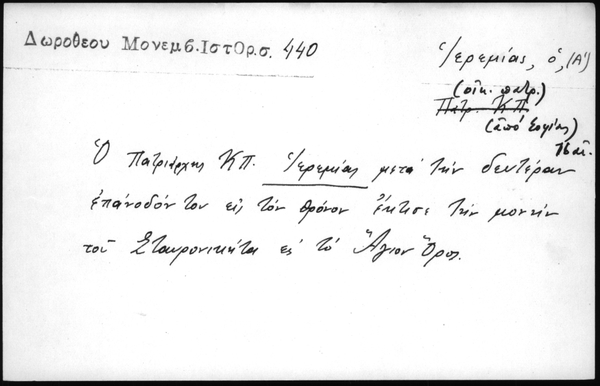 Δωροθεου Μονεμβ.ΙστΟρ.σ. 440
Ἱερεμίας, ὁ, (Α')
(οἰκ. πατρ.)
Πατρ. Κ.Π.
(ἀπό Σοφίας)
16 αἰ.
Ὁ Πατριάρχης Κ.Π. Ἱερεμίας μετά τήν δευτέραν
ἐπάνοδόν του εἰς τόν θρόνον ἔκτισε τήν μονήν
τοῦ Σταυρονικήτα εἰς τό Ἅγιον Ὄρος.